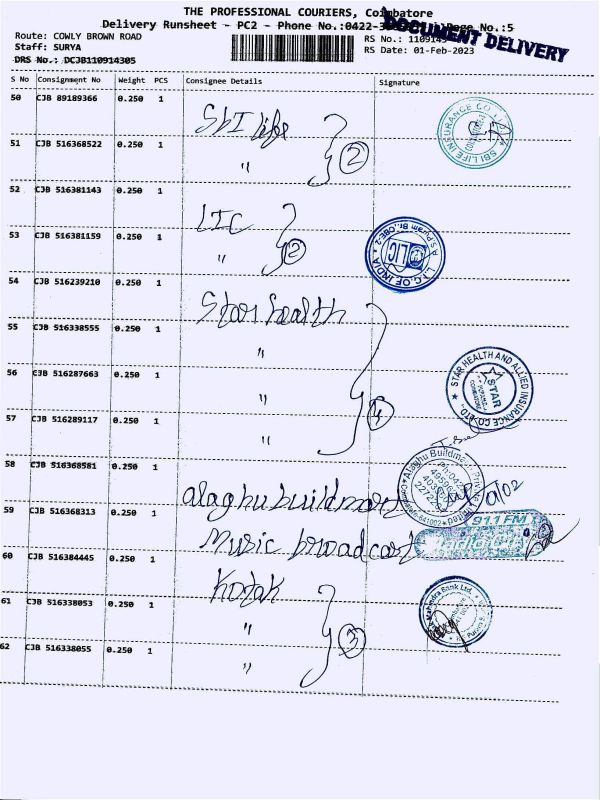 THE PROFESSIONAL COURIERS, Coimbatore
Delivery Runsheet - PC2 - Phone No.:0422- Page No.:5
DOCUMENT DELIVERY
Route: COWLY BROWN ROAD
RS No.: 110914
Staff: SURYA
RS Date: 01-Feb-2023
DRS No.: DCJB110914305
S No Consignment No Weight PCS Consignee Details Signature
50 CJB 89189366 0.250 1 SbI life
SBI LIFE INSURANCE CO
51 CJB 516368522 0.250 1 " 2
52 CJB 516381143 0.250 1 LIC
53 CJB 516381159 0.250 1 " 2
L.I.C. OF INDIA
LIC
54 CJB 516239210 0.250 1 Star health
55 CJB 516338555 0.250 1 "
56 CJB 516287663 0.250 1 "
STAR HEALTH AND ALLIED INSURANCE CO. LTD.
STAR
57 CJB 516289117 0.250 1 " 4
58 CJB 516368581 0.250 1 alaghu buildmart
59 CJB 516368313 0.250 1 Music broadcast
91.1 FM
60 CJB 516384445 0.250 1 Kotak
Mahindra Bank Ltd.
61 CJB 516338053 0.250 1 " 3
62 CJB 516338055 0.250 1 "